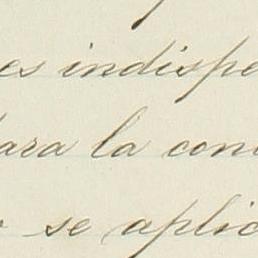 es indispe
ara la con
se aplic